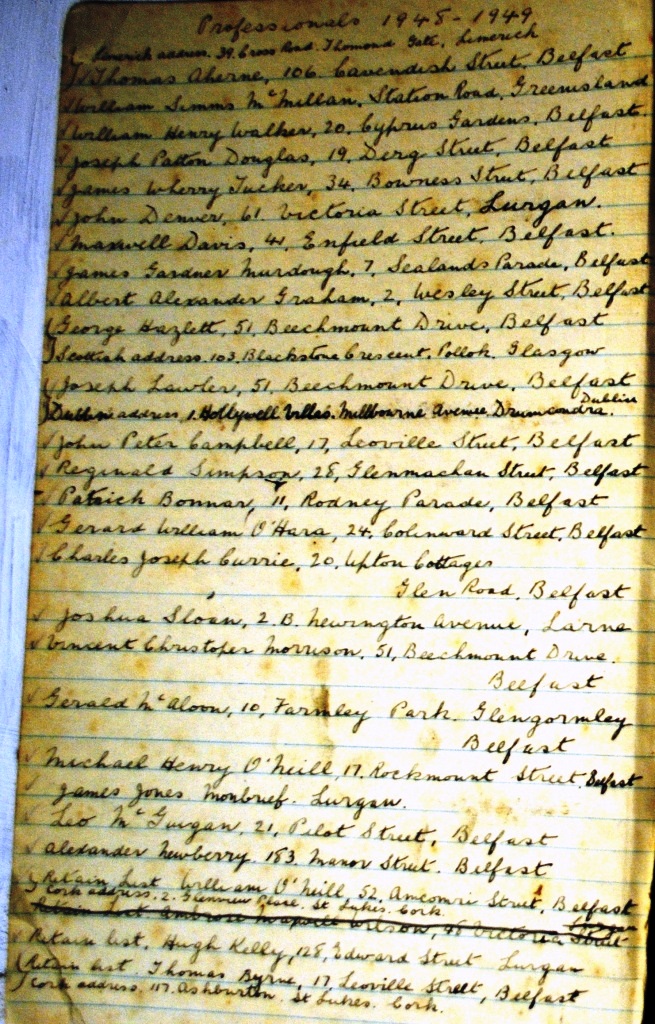 Professionals 1948-1949
Limerick address. 39. Cross Road. Thomond Gate, Limerick
Thomas Aherne, 106. Cavendish Street, Belfast
William Simms McMillan, Station Road, Greenisland
William Henry Walker, 20, Cyprus Gardens, Belfast.
Joseph Patton Douglas, 19, Derg Street, Belfast
James Wherry Tucker, 34, Bowness Street, Belfast
John Denver, 61 Victoria Street, Lurgan.
Maxwell Davis, 41, Enfield Street, Belfast.
James Gardner Murdough, 7, Sealands Parade, Belfast
Albert Alexander Graham, 2, Wesley Street, Belfast
George Hazlett, 51, Beechmount Drive, Belfast
Scottish address. 103, Blackstone Crescent, Pollok, Glasgow
Joseph Lawler, 51, Beechmount Drive, Belfast
Dublin address, 1. Hollywell Villas. Millbourne Avenue Drumcondra. Dublin
John Peter Campbell, 17, Leoville Street, Belfast
Reginald Simpson, 28, Glenmachan Street, Belfast
Patrick Bonnar, 11, Rodney Parade, Belfast
Gerard William O'Hara, 24, Colinward Street, Belfast
Charles Joseph Currie, 20, Upton Cottages
Glen Road, Belfast
Joshua Sloan, 2. B. Newington Avenue, Larne
Vincent Christoper Morrison, 51, Beechmount Drive.
Belfast
Gerald McAloon, 10, Farmley Park. Glengormley
Belfast
Michael Henry O'Neill, 17, Rockmount Street, Belfast
James Jones Monbrief. Lurgan.
Leo McGuigan, 21, Pilot Street, Belfast
Alexander Newberry. 183. Manor Street. Belfast
Retain List William O'Neill, 52, Amcomri Street, Belfast
Cork address. 2. Glenview Place. St Lukes. Cork.
Retain List Ambrose Maxwell Wilson, 48 Victoria Street Lurgan
Retain list, Hugh Kelly, 128, Edward Street Lurgan
Retain list Thomas Byrne, 17, Leoville Street, Belfast
Cork address. 117. Ashburton. St Lukes. Cork.